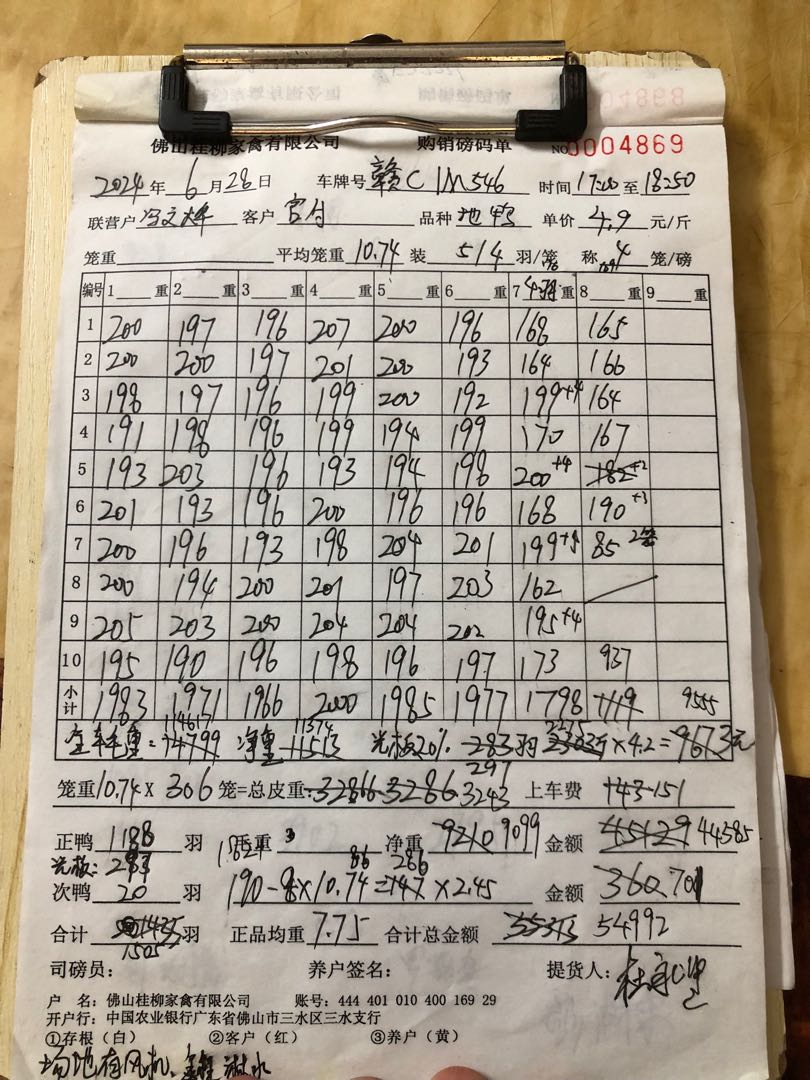 佛山桂柳家禽有限公司 购销磅码单 NO 0004869
2024年 6月28日 车牌号 赣C1M546 时间 17:00至18:50
联营户 客户 官付 品种 地鸭 单价 4.9 元/斤
笼重 平均笼重 10.74 装 514 羽/笼 称 4 笼/磅
编号 1 重 2 重 3 重 4 重 5 重 6 重 7 4羽 重 8 重 9 重
1 200 197 196 207 200 196 168 165
2 200 200 197 201 200 193 164 166
3 198 197 196 199 200 192 199+4 164
4 191 198 196 199 194 199 170 167
5 193 203 196 193 194 198 200+4 182+2
6 201 193 196 200 196 196 168 190+3
7 200 196 193 198 204 201 199+4 85 2笼
8 200 194 200 201 197 203 162
9 205 203 200 204 204 202 195+4
10 195 190 196 198 196 197 173 937
小计 1983 1971 1966 2000 1985 1977 1798 9555
14617 11374
全车毛重=14799 净重 11513 光板20% 283羽 ×4.2=9673元
297
笼重10.74×306笼=总皮重 32866 3286 3243 上车费 143 151
正鸭 1188 羽 毛重 净重 9210 9099 金额 45129 44585
光板:283 86 286
次鸭 20 羽 190-8×10.74=147×2.45 金额 360 701
合计 1435 羽 正品均重 7.75 合计总金额 54992
1505
司磅员: 养户签名: 提货人:
户 名:佛山桂柳家禽有限公司 账号:444 401 010 400 169 29
开户行:中国农业银行广东省佛山市三水区三水支行
①存根(白) ②客户(红) ③养户(黄)
场地有风机、淋水